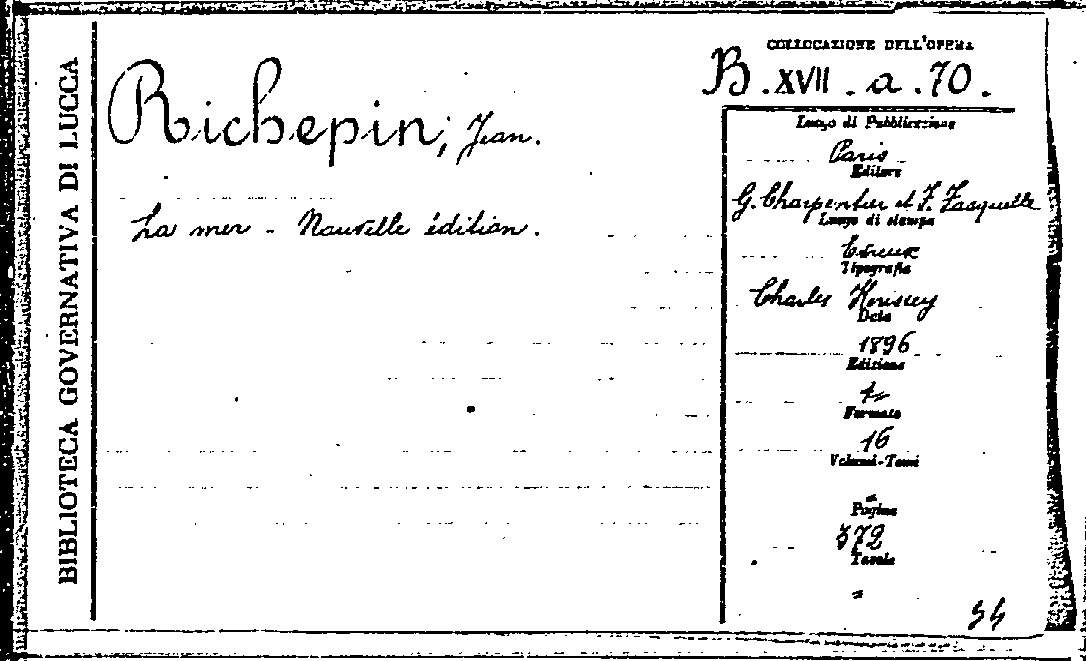 BIBLIOTECA GOVERNATIVA DI LUCCA
Richepin, Jean.
La mer - Nouvelle édition.
COLLOCAZIONE DELL'OPERA
B. XVII. a. 70.
Luogo di Pubblicazione
Paris
Editore
G. Charpentier et F. Fasquelle
Luogo di stampa
Evreux
Tipografia
Charles Herissey
Data
1896
Edizione
Formato
16
Volumi-Tomi
"
Pagine
372
Tavole
"